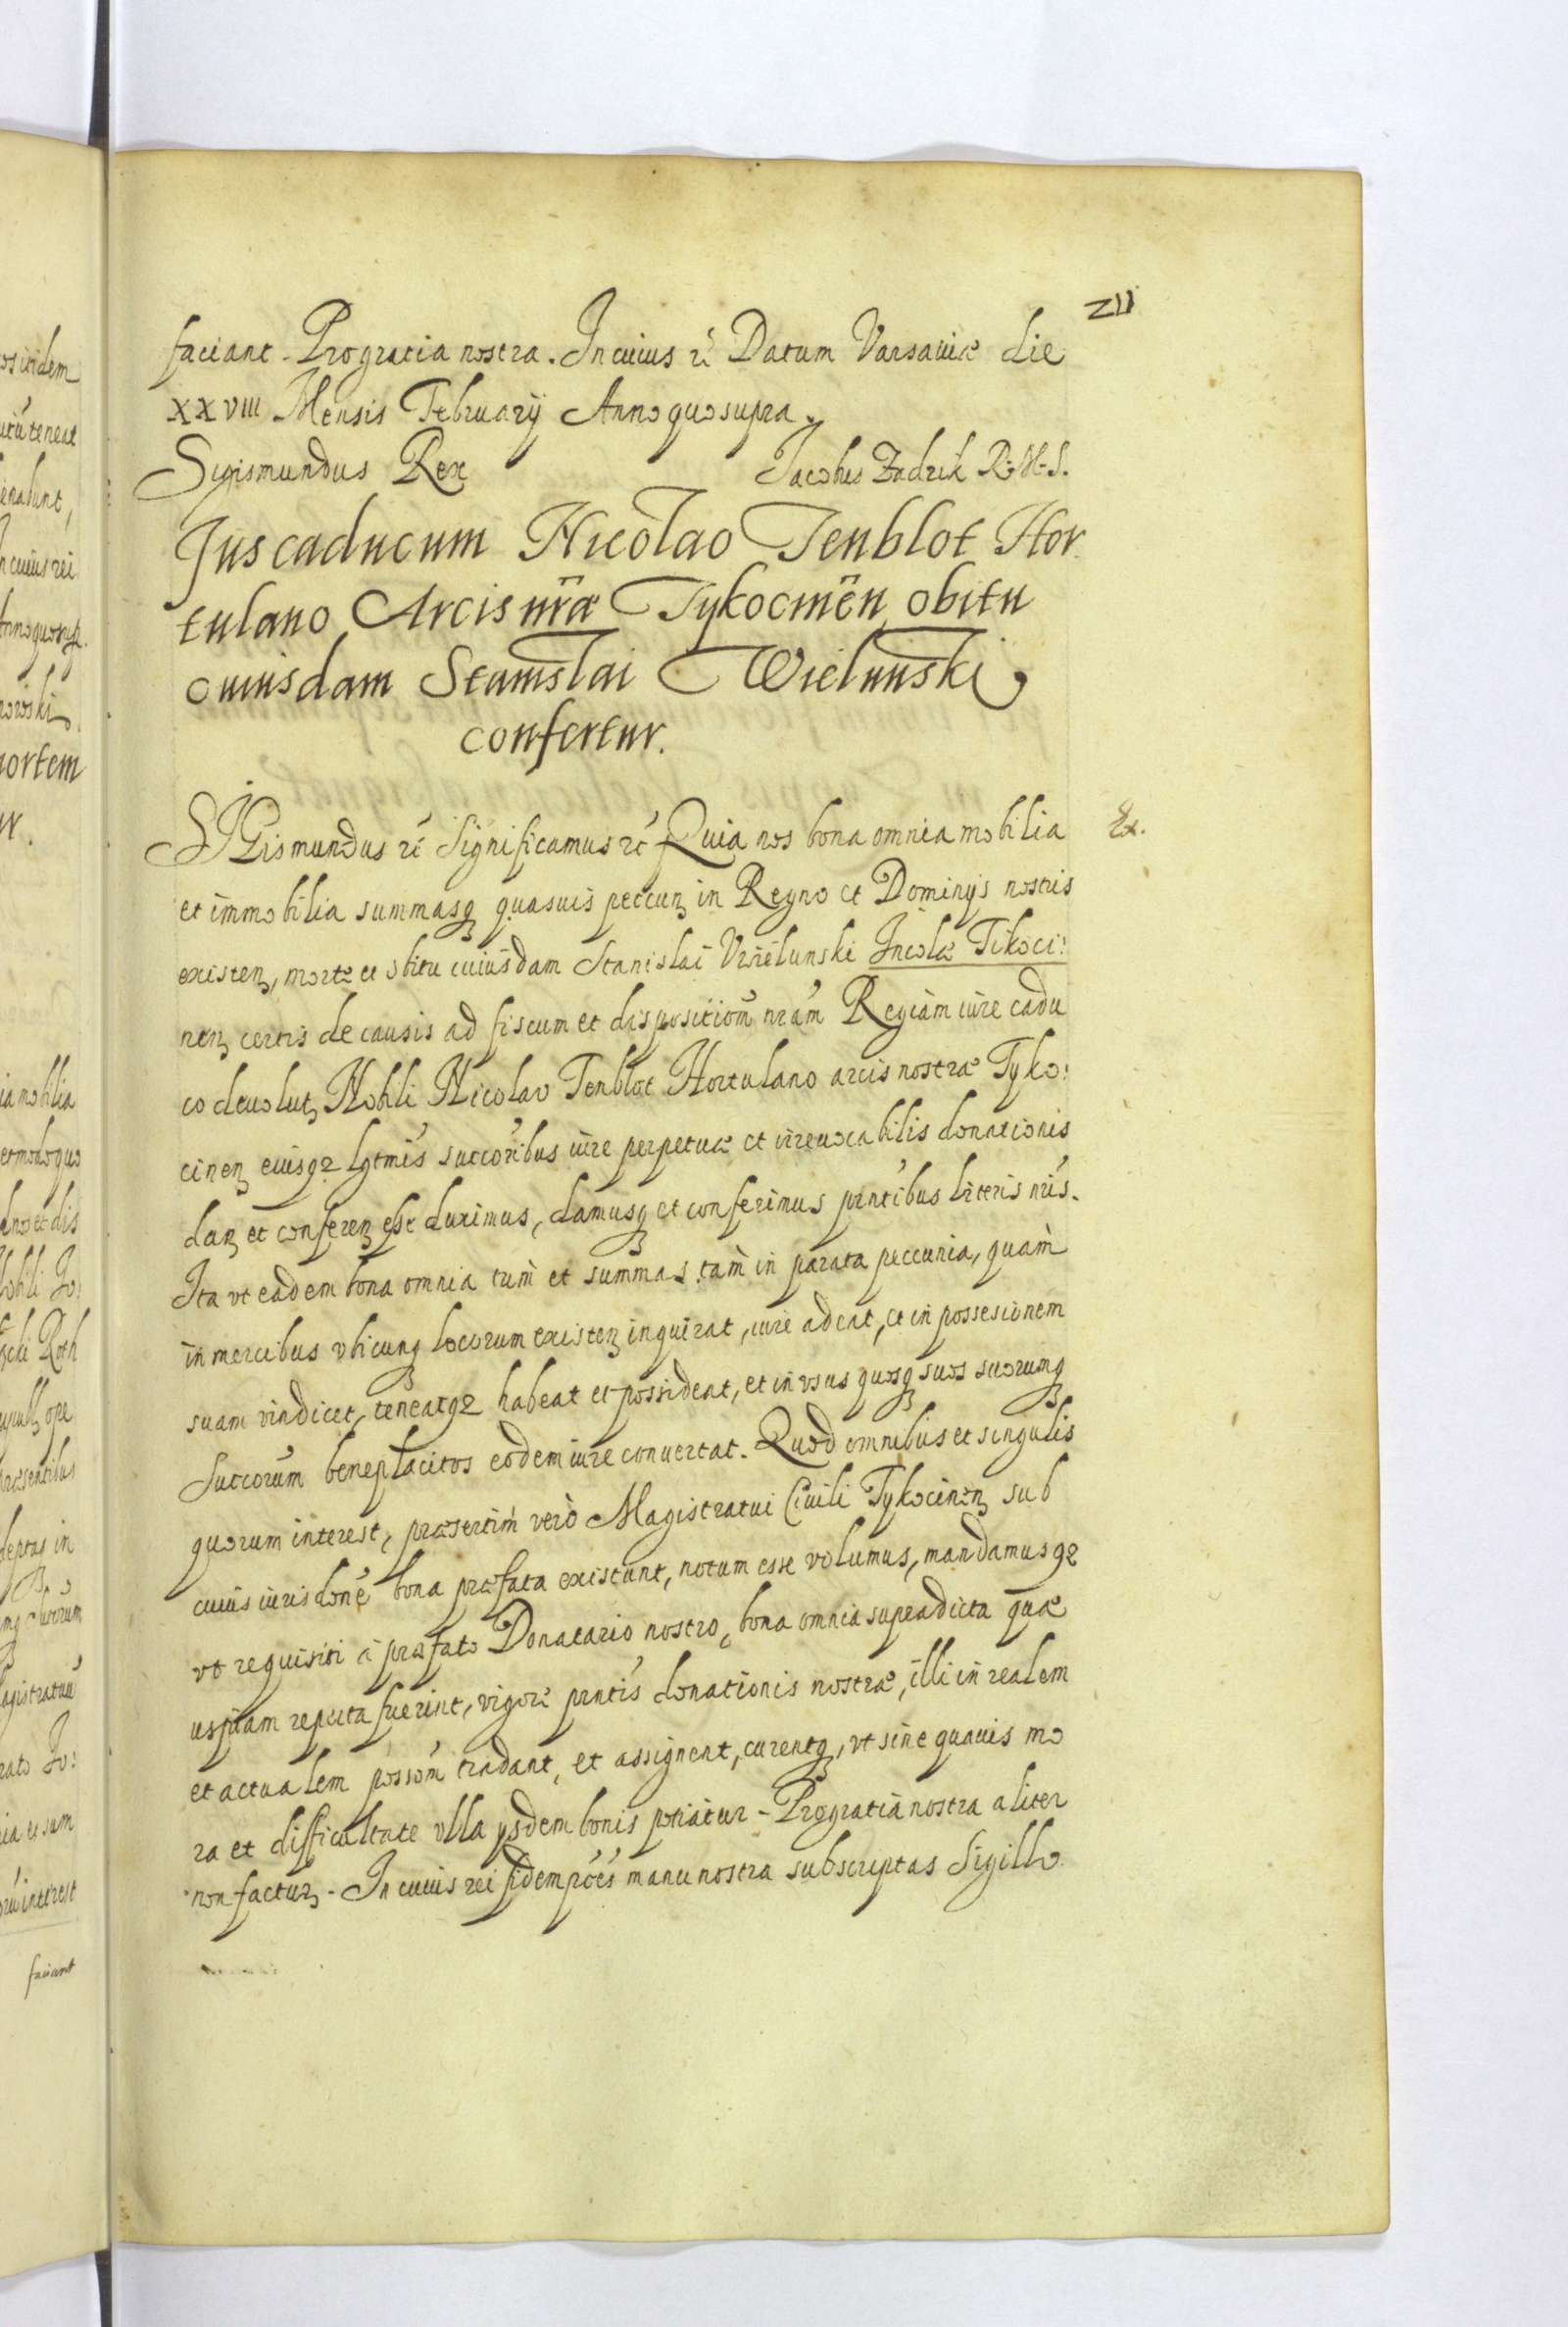 211
faciant. Pro gratia nostra. In cuius rẽ Datum Varsauiæ die
XXVIII Mensis Februarij Anno quo supra.
Sigismundus Rex Jacobus Zadzik R. M. S.
Jus caducum Nicolao Tenblot Hor
tulano Arcis nr̃æ Tykocineñ obitu
cuiusdam Stanislai Wielunski
confertur.
SIGismundus rč Significamus rč Quia nos bona omnia mobilia
Ex.
et immobilia summasq quasuis peccun in Regno et Dominÿs nostris
existen, morte et obitu cuiusdam Stanislai Wielunski Incolæ Tikoci:
nen certis de causis ad fiscum et dispositiom̃ nr̃am Regiam iure cadu
co deuolut Nobili Nicolao Tenblot Hortulano arcis nostræ Tyko:
cinen eiusq lgtmis succoribus iure perpetuæ et irreuocabilis donationis
dan et conferen esse duximus, damusq et conferimus pntibus literis nris.
Ita vt eadem bona omnia tum et summas tam in parata peccunia, quam
in mercibus vbicunq locorum existen inquirat, iure adeat, et in possesionem
suam vindicet, teneatq habeat et possideat, et in vsus quosq suos suorumq
succorum beneplacitos eodem iure conuertat. Quod omnibus et singulis
quorum interest, præsertim vero Magistratui Ciuili Tykocinen sub
cuius iurisdone bona præfata existunt, notum esse volumus, mandamusq
vt requisiti a præfato Donatario nostro, bona omnia supradicta quæ
uspiam reperta fuerint, vigore pntis donationis nostræ, illi in realem
et actualem possom tradant, et assignent, curentq, vt sine quauis mo
ra et difficultate vlla ysdem bonis potiatur. Pro gratia nostra aliter
non factur. In cuius rei fidem pñtes manu nostra subscriptas Sigillo